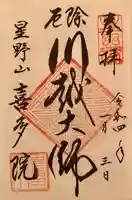 奉拝
令和四年
一月三日
厄除
川越大師
星野山
喜多院